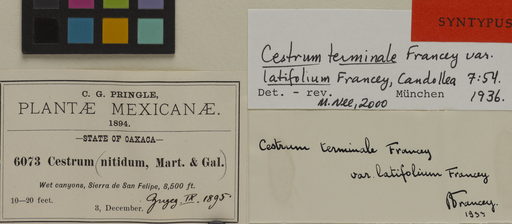 SYNTYPUS
Cestrum terminale Francey var.
latifolium Francey, Candollea 7:54.
1936.
Det. - rev. München
M. Nee, 2000
C. G. PRINGLE,
PLANTÆ MEXICANÆ.
1894.
STATE OF OAXACA
6073 Cestrum (nitidum, Mart. & Gal.)
Wet canyons, Sierra de San Felipe, 8,500 ft.
10–20 feet.
3, December.
IX. 1895
Cestrum terminale Francey
var. latifolium Francey
Francey.